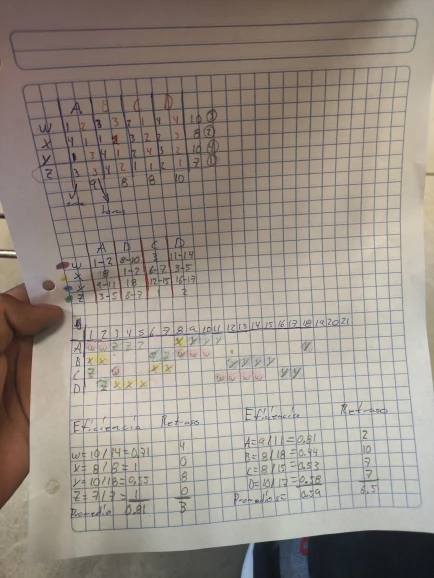 A B C D
W 1 2 3 3 2 1 4 4 10
X 4 1 2 3 2 2 3 8
Y 1 3 4 1 2 4 3 2 10
Z 3 3 4 2 1 1 2 1 7
9 8 8 10
A D C D
W 1-2 8-10 11-14
X 18 1-2 6-7 3-5
9-11 18 12-15 16-17
Z 3-5 6-7 1 2
1 2 3 4 5 6 7 8 9 10 11 12 13 14 15 16 17 18 19 20 21
A W W Z Z Z X Y Y Y Y
B X X Z Z W W W
C Z W X X Y Y Y Y
D Z X X X W W W W Y Y
Eficiencia Retraso
W=10/14=0,71 4
X=8/8=1 0
Y=10/18=0,55 8
Z=7/7=1 0
Promedio 0.81 3
Eficiencia Retraso
A=9/11=0,81 2
B=8/18=0,44 10
C=8/15=0,53 7
D=10/17=0,58 7
Promedio= 0.59 6,5